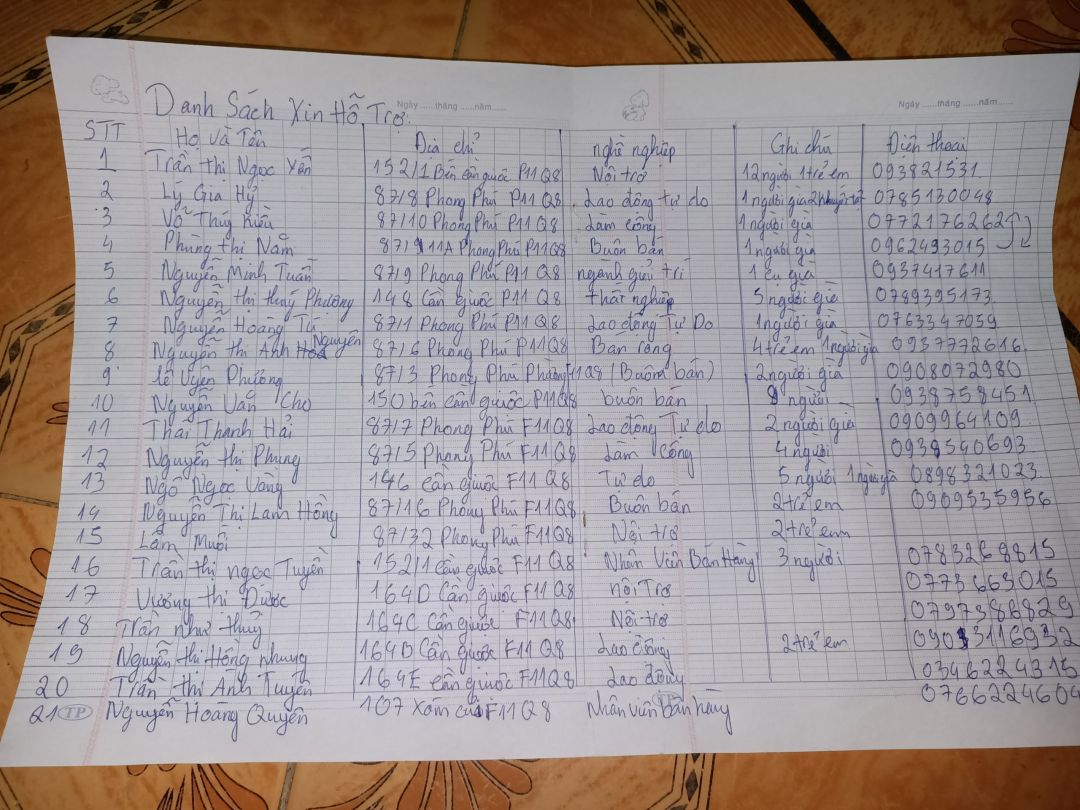 Danh Sách Xin Hỗ Trợ:
Ngày ......tháng ......năm......
Ngày ......tháng ......năm......
STT Họ và Tên Địa chỉ nghề nghiệp Ghi chú Điện thoại
1 Trần thị Ngọc Yến 152/1 Bến cần giuộc P11 Q8 Nội trợ 12 người 1 trẻ em 093821531.
2 Lý Gia Hỷ 87/8 Phong Phú P11 Q8 Lao động tự do 1 người già 2 khuyết tật 0785130048
3 Võ Thúy Kiều 87/10 Phong Phú P11 Q8 Làm công 1 người già 0772176262
4 Phùng thị Năm 87/11A Phong Phú P11 Q8 Buôn bán 1 người già 0962493015
5 Nguyễn Minh Tuấn 87/9 Phong Phú P11 Q8 ngành giải trí 1 cụ già 0937417611
6 Nguyễn thị thuý Phượng 148 Cần giuộc P11 Q8 thất nghiệp 5 người già 0789395173.
7 Nguyễn Hoàng Tú 87/1 Phong Phú P11 Q8 Lao động Tự Do 1 người già 0763347059
8 Nguyễn thị Ánh Nguyên 87/6 Phong Phú P11 Q8 Ban rong 4 trẻ em 1 người già 0937772616.
9 Lê Uyên Phương 87/3 Phong Phú Phường F11 Q8 (Buôm bán) 2 người già 0908072980
10 Nguyễn Văn Chơ 150 bến cần giuộc P11 Q8 buôn bán 8 người 0938758451
11 Thái Thanh Hải 87/7 Phong Phú F11 Q8 Lao động Tự do 2 người già 0909964109.
12 Nguyễn thị Phụng 87/5 Phong Phú F11 Q8 Làm Công 4 người 0938540693
13 Ngô Ngọc Vàng 146 Cần giuộc F11 Q8 Tự do 5 người 1 người già 0898321023.
14 Nguyễn Thị Lam Hồng 87/16 Phong Phú F11 Q8 Buôn bán 2 trẻ em 0909535956
15 Lâm Muối 87/32 Phong Phú F11 Q8 Nội trợ 2 trẻ em
16 Trần thị ngọc Tuyền 152/1 Cần giuộc F11 Q8 Nhân Viên Bán Hàng 3 người 0783268815
17 Vương thị Được 164D Cần giuộc F11 Q8 nội Trợ 0773663015
18 Trần như thuỷ 164C Cần giuộc F11 Q8 Nội trợ 0797386829
19 Nguyễn thị Hồng Nhung 164D Cần giuộc F11 Q8 Lao động 2 trẻ em 0903116932
20 Trần thị Ánh Tuyền 164E Cần giuộc F11 Q8 Lao động 0346224315
21 Nguyễn Hoàng Quyên 107 Xóm củi F11 Q8 Nhân viên bán hàng 0766224604
TP
TP